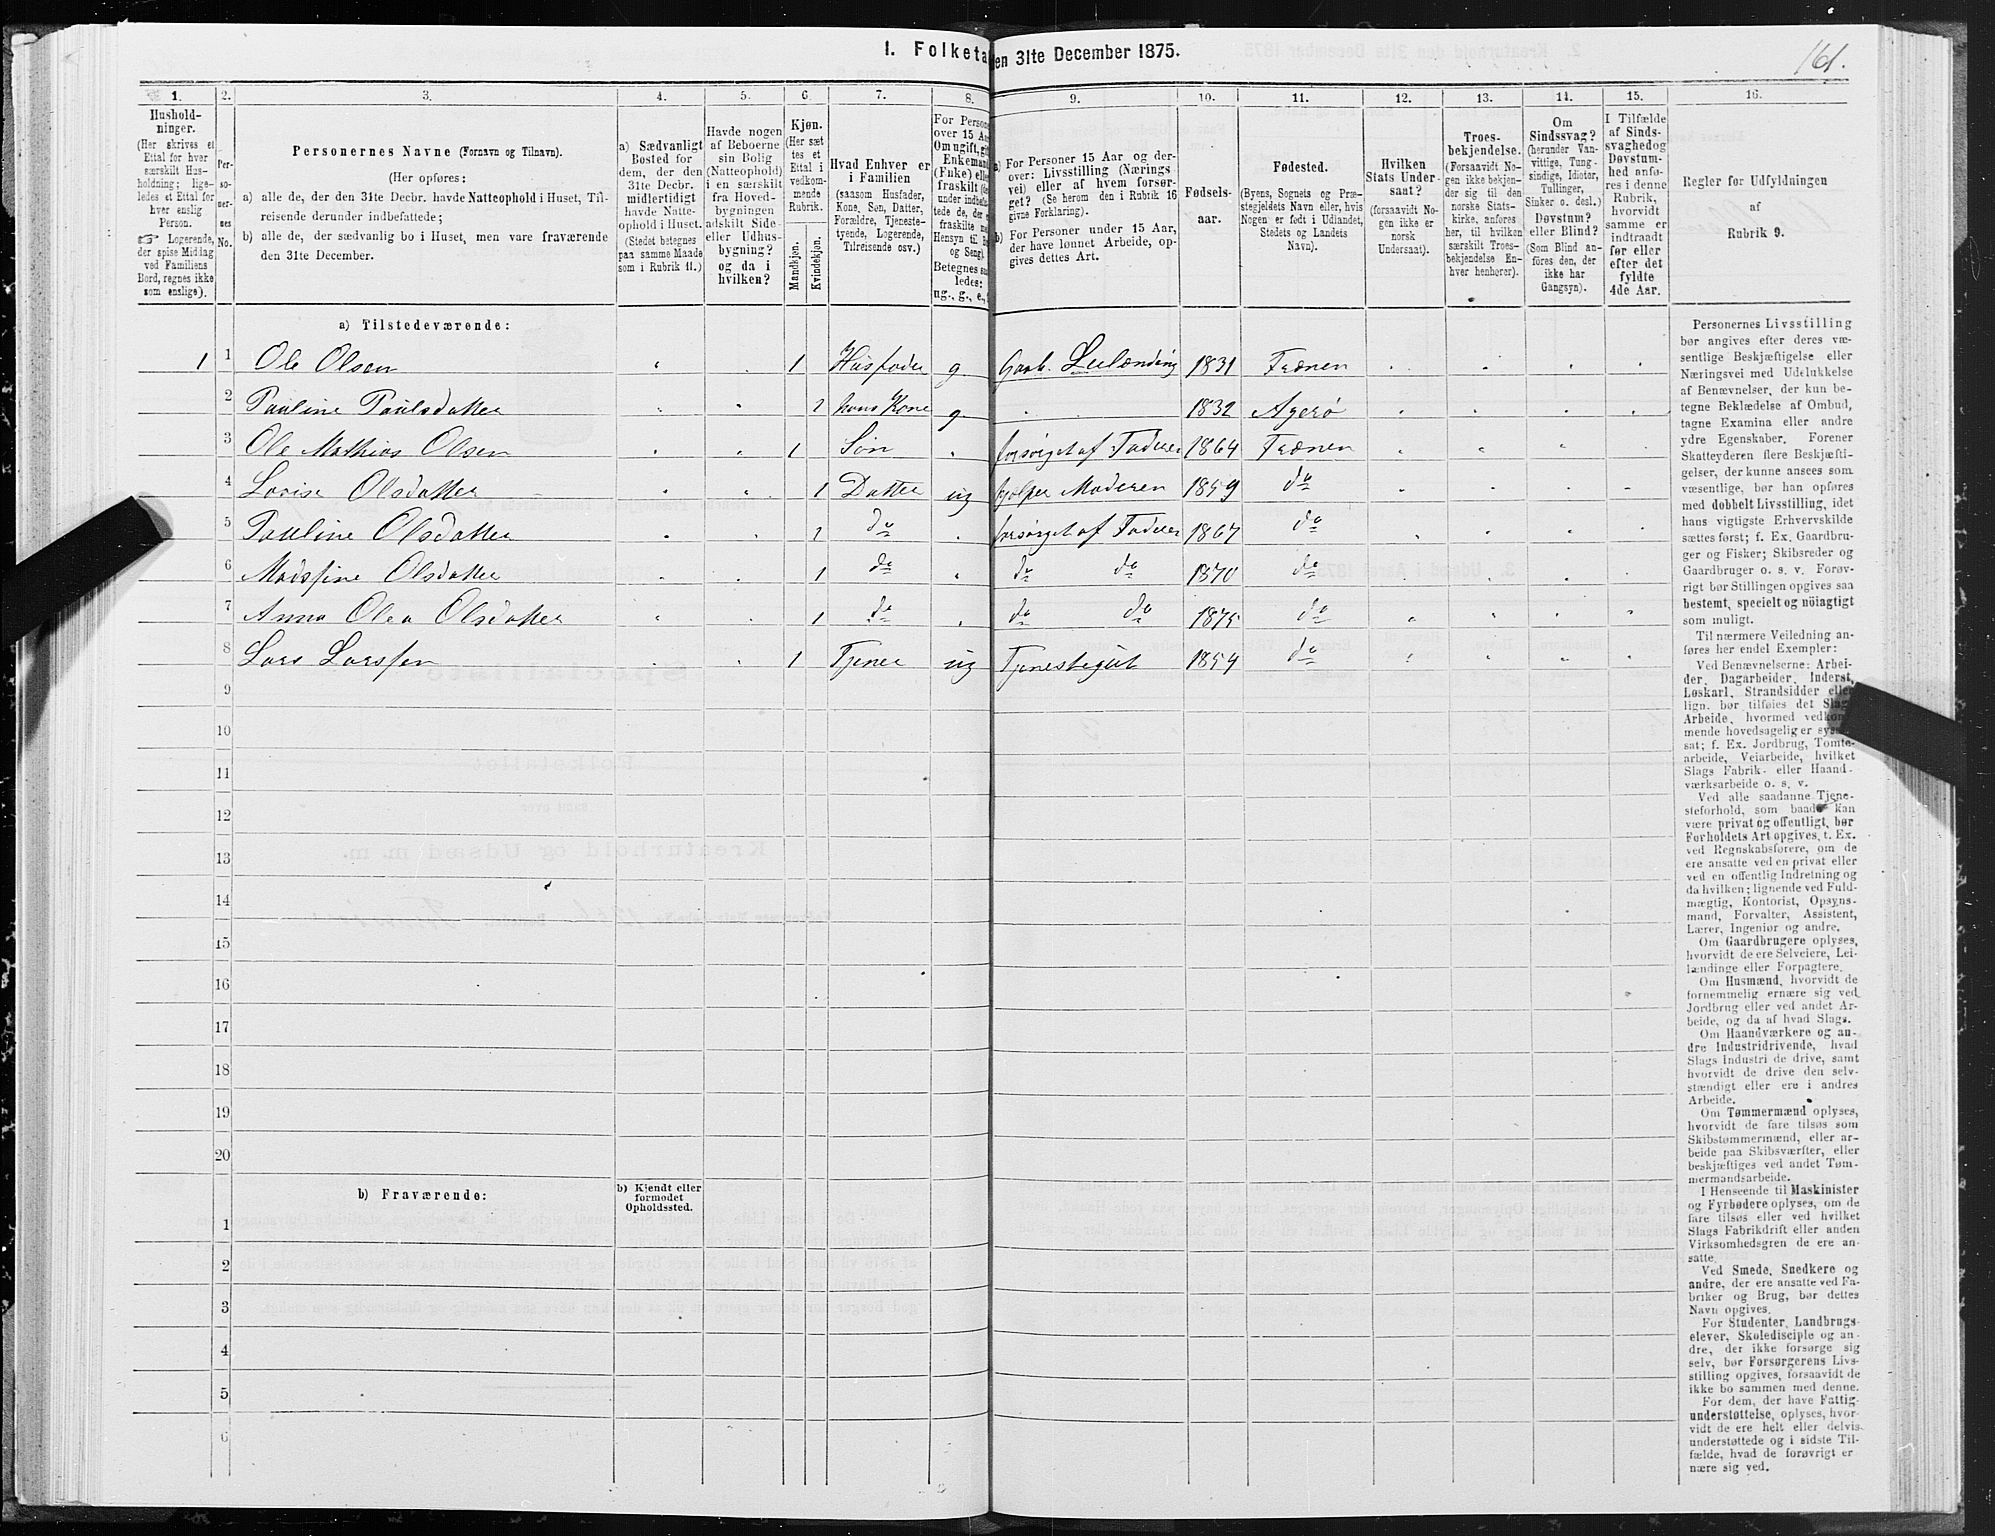 1. Folketa en 31te December 1875.
161.
1. 2. 3. 4. 5. 6. 7. 8. 9. 10. 11. 12. 13. 14. 15. 16.
Hushold-
ninger.
(Her skrives et
Ettal for hver
særskilt Hus-
holdning; lige-
ledes et Ettal for
hver enslig
Person.
☞ Logerende,
der spise Middag
ved Familiens
Bord, regnes ikke
som enslige).
Per-
so-
ner-
nes
No.
Personernes Navne (Fornavn og Tilnavn).
(Her opføres:
a) alle de, der den 31te Decbr. havde Natteophold i Huset, Til-
reisende derunder indbefattede;
b) alle de, der sædvanlig bo i Huset, men vare fraværende
den 31te December.
a) Sædvanligt
Bosted for
dem, der den
31te Decbr.
midlertidigt
havde Natte-
ophold i Huset.
(Stedet betegnes
paa samme Maade
som i Rubrik 11.)
Havde nogen
af Beboerne
sin Bolig
(Natteophold)
i en særskilt
fra Hoved-
bygningen
adskilt Side-
eller Udhus-
bygning?
og da i
hvilken?
Kjøn.
(Her sæt
tes et
Ettal i
vedkom-
mende
Rubrik.
Mandkjøn.
Kvindekjøn.
Hvad Enhver er
i Familien
(saasom Husfader,
Kone, Søn, Datter,
Forældre, Tjeneste-
tyende, Logerende,
Tilreisende osv.)
For Persone
over 15 Aa
Om ugift, gif
Enkemand
(Enke) elle
fraskilt (de
under indbefat-
tede de, der e
fraskilte m
Hensyn til Bo
og Seng).
Betegnes saa
ledes:
ug., g., e.,
a) For Personer 15 Aar og der-
over: Livsstilling (Nærings
vei) eller af hvem forsør-
get? (Se herom den i Rubrik 16
givne Forklaring).
b) For Personer under 15 Aar,
der have lønnet Arbeide, op-
gives dettes Art.
Fødsels-
aar.
Fødested.
(Byens, Sognets og Præ-
stegjeldets Navn eller, hvis
Nogen er født i Udlandet,
Stedets og Landets
Navn).
Hvilken
Stats Under-
saat?
(forsaavidt No-
gen ikke er
norsk
Undersaat).
Troes-
bekjendelse.
(Forsaavidt No-
gen ikke bekjen-
der sig til den
norske Stats-
kirke, anføres
her, til hvilken
særskilt Troes-
bekjendelse En-
hver henhører).
Om
Sindssvag?
(herunder Van-
vittige, Tung-
sindige, Idioter,
Tullinger,
Sinker o. desl.)
Døvstum?
eller Blind?
(Som Blind an-
føres den, der
ikke har
Gangsyn).
I Tilfælde
af Sinds-
svaghed og
Døvstum-
hed anfø-
res i denne
Rubrik,
hvorvidt
samme er
indtraadt
før eller
efter det
fyldte
4de Aar.
Regler før Udfyldningen
af
Rubrik 9.
a) Tilstedeværende:
1 1 Ole Olsen 1 Husfader g Gaarb. Leilænding 1831 Trænen
2 Pauline Paulsdatter 1 hans Kone g 1832 Agerø
3 Ole Mathias Olsen 1 Søn forsørget af Faderen 1864 Trænen
4 Lovise Olsdatter 1 Datter ug hjælper Moderen 1859 do
5 Pauline Olsdatter 1 do forsørget af Faderen 1867 do
6 Madsfine Olsdatter 1 do do do 1870 do
7 Anna Olea Olsdatter 1 do do do 1875 do
8 Lars Larssen 1 Tjener ug Tjenestegut 1854 do
9
10
11
12
13
14
15
16
17
18
19
20
b) Fraværende:
b) Kjendt eller
formodet
Opholdssted.
1
2
3
4
5
6
Personernes Livsstilling
bør angives efter deres væ-
sentlige Beskjæftigelse eller
Næringsvei med Udelukkelse
af Benævnelser, der kun be-
tegne Beklædelse af Ombud,
tagne Examina eller andre
ydre Egenskaber. Forener
Skatteyderen flere Beskjæfti-
gelser, der kunne ansees som
væsentlige, bør han opføres
med dobbelt Livsstilling, idet
hans vigtigste Erhvervskilde
sættes først; f. Ex. Gaardbru-
ger og Fisker; Skibsreder og
Gaardbruger o. s. v. Forøv-
rigt bør Stillingen opgives saa
bestemt, specielt og nöiagtigt
som muligt.
Til nærmere Veiledning an-
føres her endel Exempler:
Ved Benævnelserne: Arbei-
der, Dagarbeider, Inderst,
Løskarl, Strandsidder eller
lign. bør tilføies det Slags
Arbeide, hvormed vedkom-
mende hovedsagelig er syssel-
sat; f. Ex. Jordbrug, Tomte-
arbeide, Veiarbeide, hvilket
Slags Fabrik- eller Haand-
værksarbeide o. s. v.
Ved alle saadanne Tjene-
steforhold, som baade kan
være privat og offentligt, bør
Forholdets Art opgives, t. Ex.
ved Regnskabsførere, om de
ere ansatte ved en privat eller
ved en offentlig Indretning og
da hvilken; lignende ved Fuld-
mægtig, Kontorist, Opsyns-
mand, Forvalter, Assistent,
Lærer, Ingeniør og andre.
Om Gaardbrugere oplyses,
hvorvidt de ere Selveiere, Lei-
lændinge eller Forpagtere.
Om Husmænd, hvorvidt de
fornemmelig ernære sig ved
Jordbrug eller ved andet Ar-
beide, og da af hvad Slags.
Om Haandværkere og an-
dre Industridrivende, hvad
Slags Industri de drive, samt
hvorvidt de drive den selv-
stændigt eller ere i andres
Arbeide.
Om Tømmermænd oplyses,
hvorvidt de fare tilsøs som
Skibstømmermænd, eller ar-
beide paa Skibsværfter, eller
beskjæftiges ved andet Tøm-
mermandsarbeide.
I Henseende til Maskinister
og Fyrbødere oplyses, om de
fare tilsøs eller ved hvilket
Slags Fabrikdrift eller anden
Virksomhedsgren de ere an-
satte.
Ved Smede, Snedkere og
andre, der ere ansatte ved Fa-
briker og Brug, bør dettes
Navn opgives.
For Studenter, Landbrugs-
elever, Skoledisciple og an-
dre, der ikke forsørge sig
selv, bør Forsørgerens Livs-
stilling opgives, forsaavidt de
ikke bo sammen med denne.
For dem, der have Fattig-
understøttelse, oplyses, hvor-
vidt de ere helt eller delvis
understøttede og i sidste Til-
fælde, hvad de forøvrigt er-
nære sig ved.